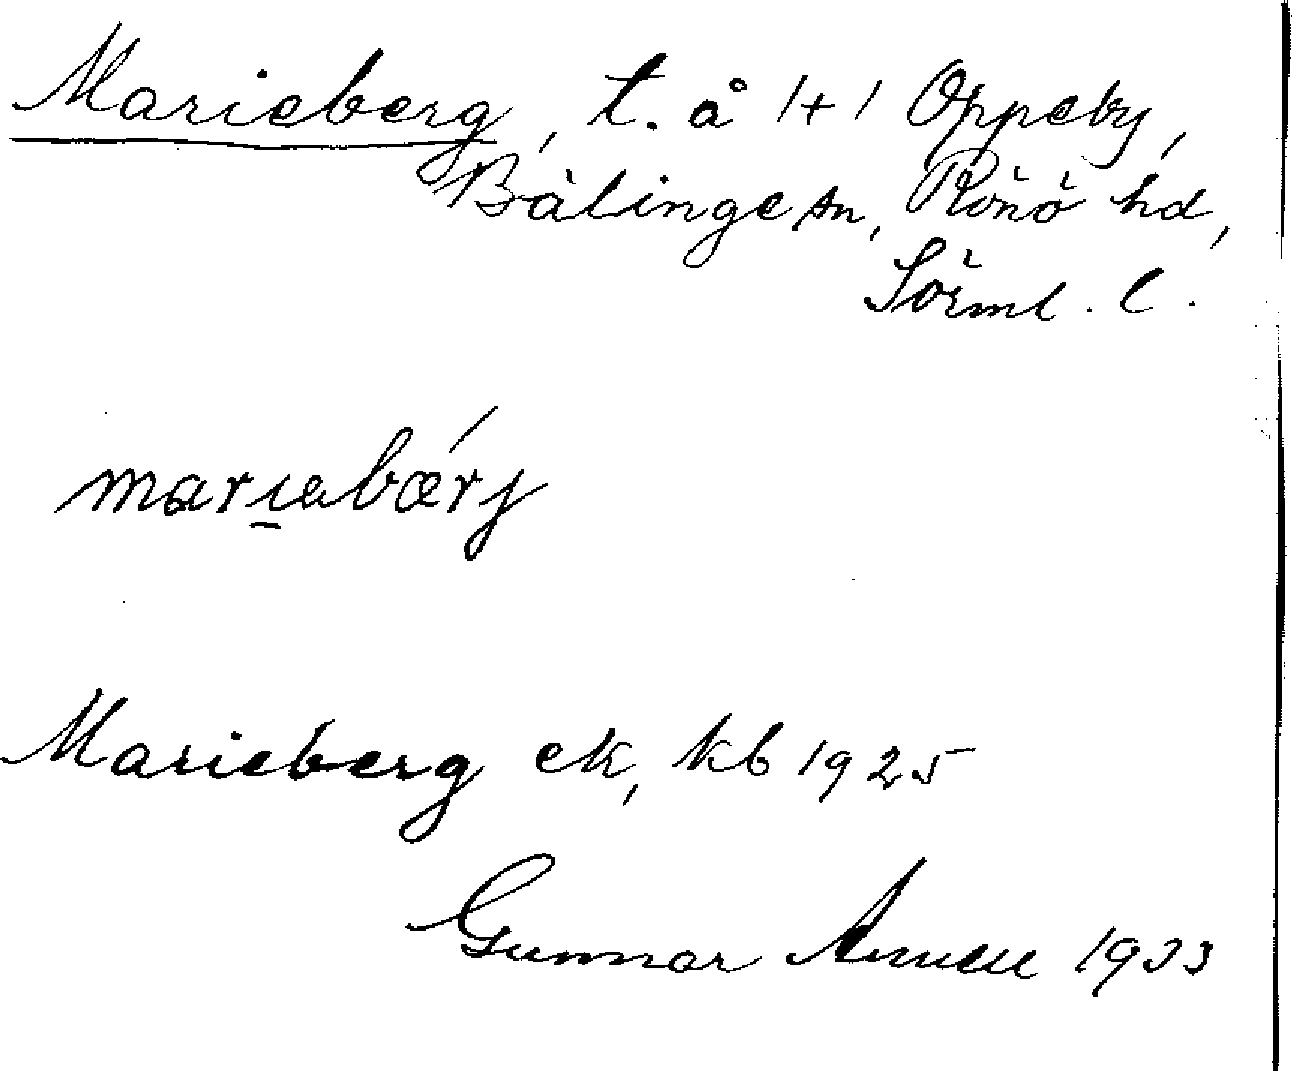 Marieberg, t. å 1+1 Oppeby,
Bälinge sn, Rönö hd,
Sörml. l.
mariabærj
Marieberg ek, kb 1925
Gunnar Annell 1933